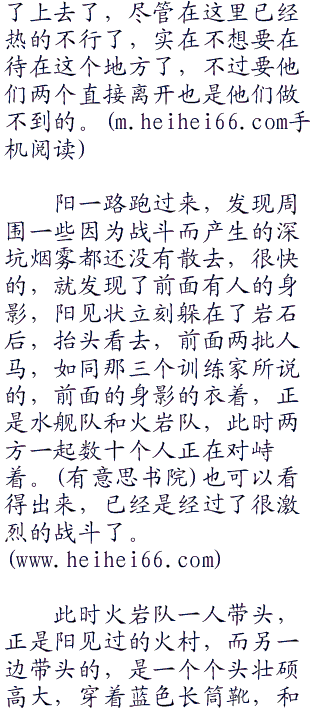 了上去了，尽管在这里已经
热的不行了，实在不想要在
待在这个地方了，不过要他
们两个直接离开也是他们做
不到的。(m.heihei66.com手
机阅读)
阳一路跑过来，发现周
围一些因为战斗而产生的深
坑烟雾都还没有散去，很快
的，就发现了前面有人的身
影，阳见状立刻躲在了岩石
后，抬头看去，前面两批人
马，如同那三个训练家所说
的，前面的身影的衣着，正
是水舰队和火岩队，此时两
方一起数十个人正在对峙
着。(有意思书院)也可以看
得出来，已经是经过了很激
烈的战斗了。
(www.heihei66.com)
此时火岩队一人带头，
正是阳见过的火村，而另一
边带头的，是一个个头壮硕
高大，穿着蓝色长筒靴，和